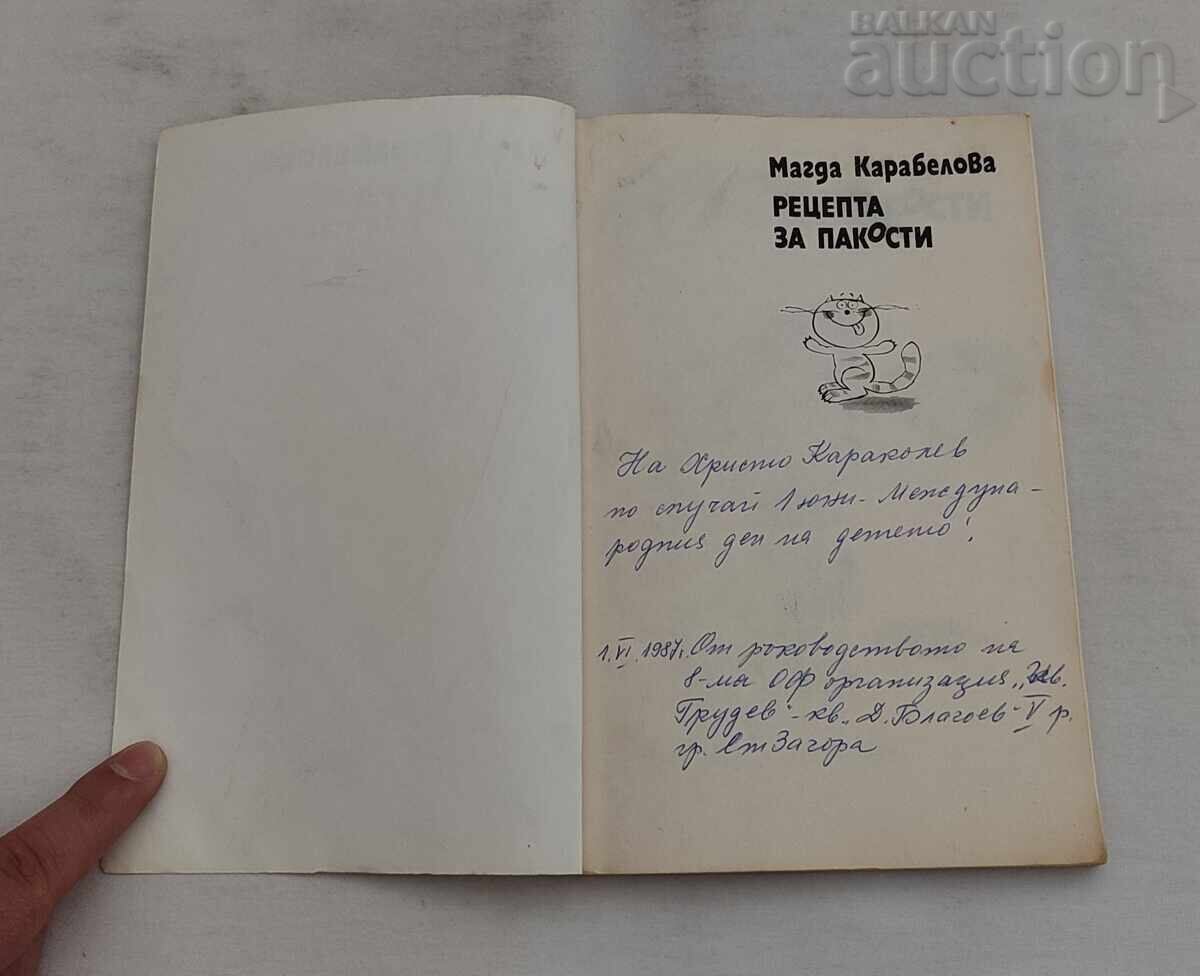 BALKAN
auction
Магда Карабелова
РЕЦЕПТА
ЗА ПАКОСТИ
На Христо Караколев
по случай 1 юни - Междуна-
родния ден на детето!
1.VI.1987г. От ръководството на
8-ма ОФ организация „
Грудев" - кв. „Д. Благоев" - V р.
гр. Ст Загора